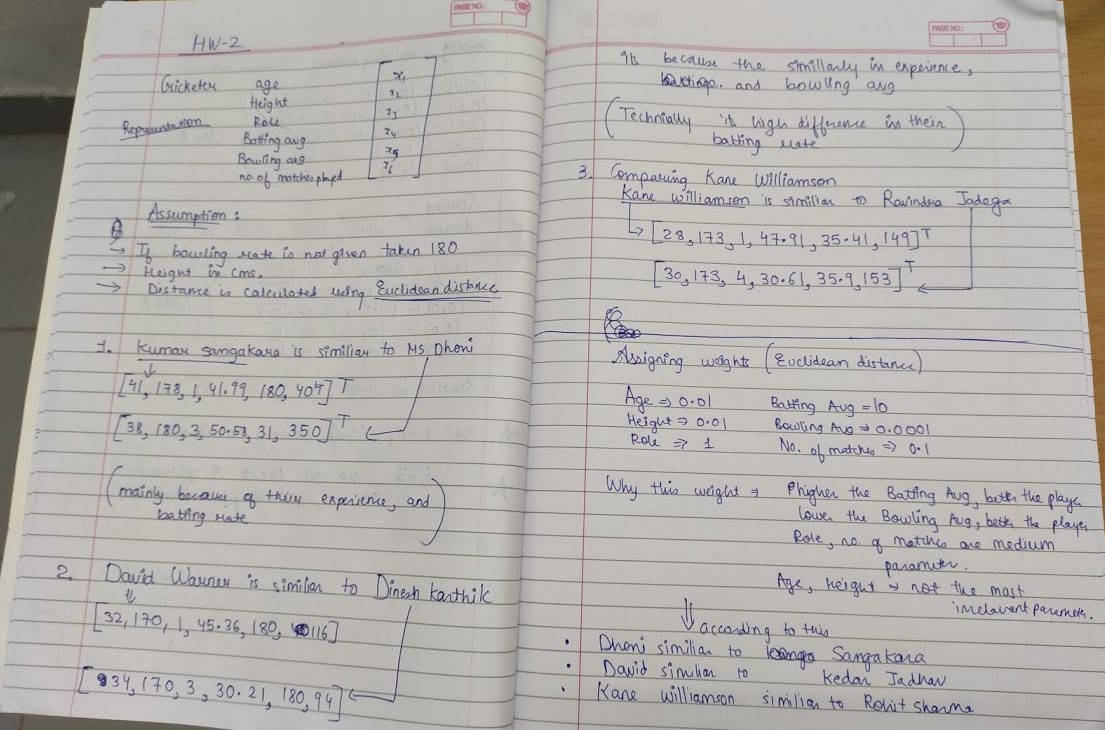 PAGE NO.:
HW-2.
Cricketer age [x1
Height x2
Representation Role x3
Batting avg x4
Bowling avg x5
no. of matches played x6]
Assumption :
→ If bowling rate is not given taken 180
→ Height in cms.
→ Distance is calculated using Euclidean distance
1. Kumar sangakara is similiar to MS Dhoni
[41, 178, 1, 41.99, 180, 404] T
[38, 180, 3, 50.53, 31, 350] T
(mainly because of their experience, and
batting rate)
2. David Warner is similiar to Dinesh karthik
[32, 170, 1, 45.36, 180, 116]
[34, 170, 3, 30.21, 180, 94]
PAGE NO.:
It's because the similiarly in experience,
and bowling avg
(Technially it's high difference in their
batting rate)
3. Comparing Kane Williamson
Kane williamson is similiar to Ravindra Jadega
[28, 173, 1, 47.91, 35.41, 149]T
[30, 173, 4, 30.61, 35.9, 153]T
Assigning weights (Euclidean distance)
Age ⇒ 0.01 Batting Avg = 10
Height ⇒ 0.01 Bowling Avg ⇒ 0.0001
Role ⇒ 1 No. of matches ⇒ 0.1
Why this weight → higher the Batting Avg, bettr the playe
lower the Bowling Avg, bettr the player
Role, no. of matches are medium
parameter.
Age, Height → not the most
irrelavent parameter.
⇓ according to this
• Dhoni similiar to Sangakara
• David similiar to Kedar Jadhav
• Kane williamson similiar to Rohit Sharma